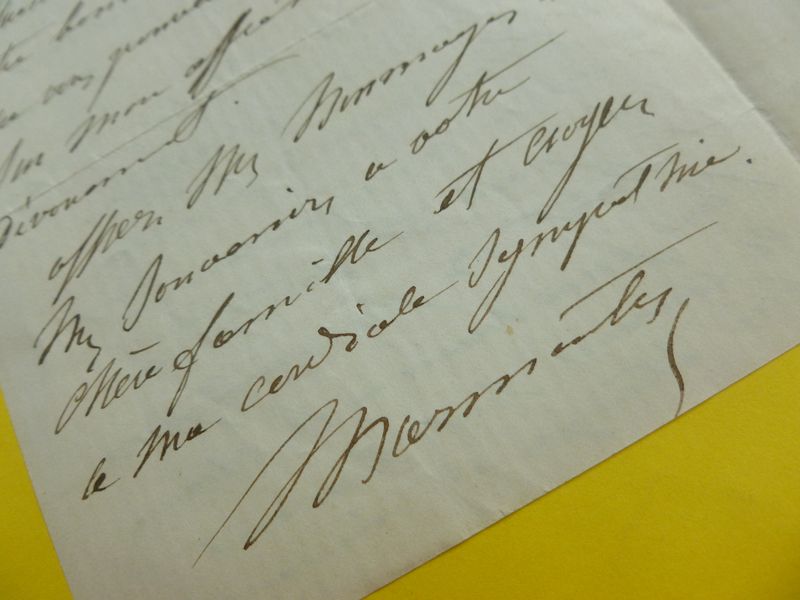 bon
vous
sur mon affec
dévouement.
offrez mes hommages
mes souvenirs a votre
chère famille et croyez
a ma cordiale sympathie.
Marmontel